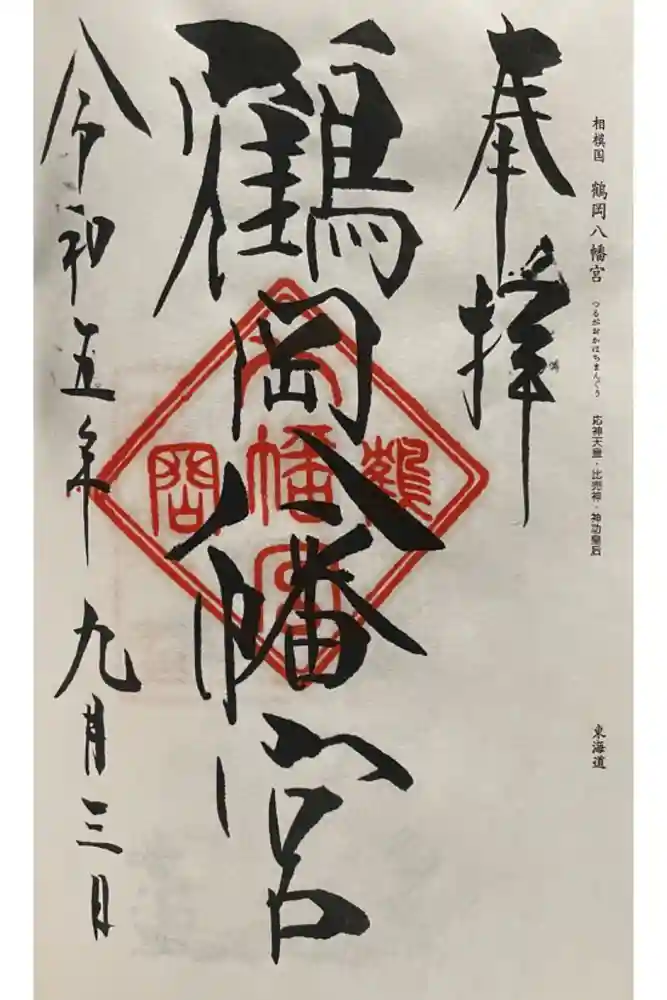 相模国 鶴岡八幡宮 つるがおかはちまんぐう 応神天皇・比売神・神功皇后 東海道
奉拝
鶴岡八幡宮
令和五年九月三日
鶴
八幡宮
岡